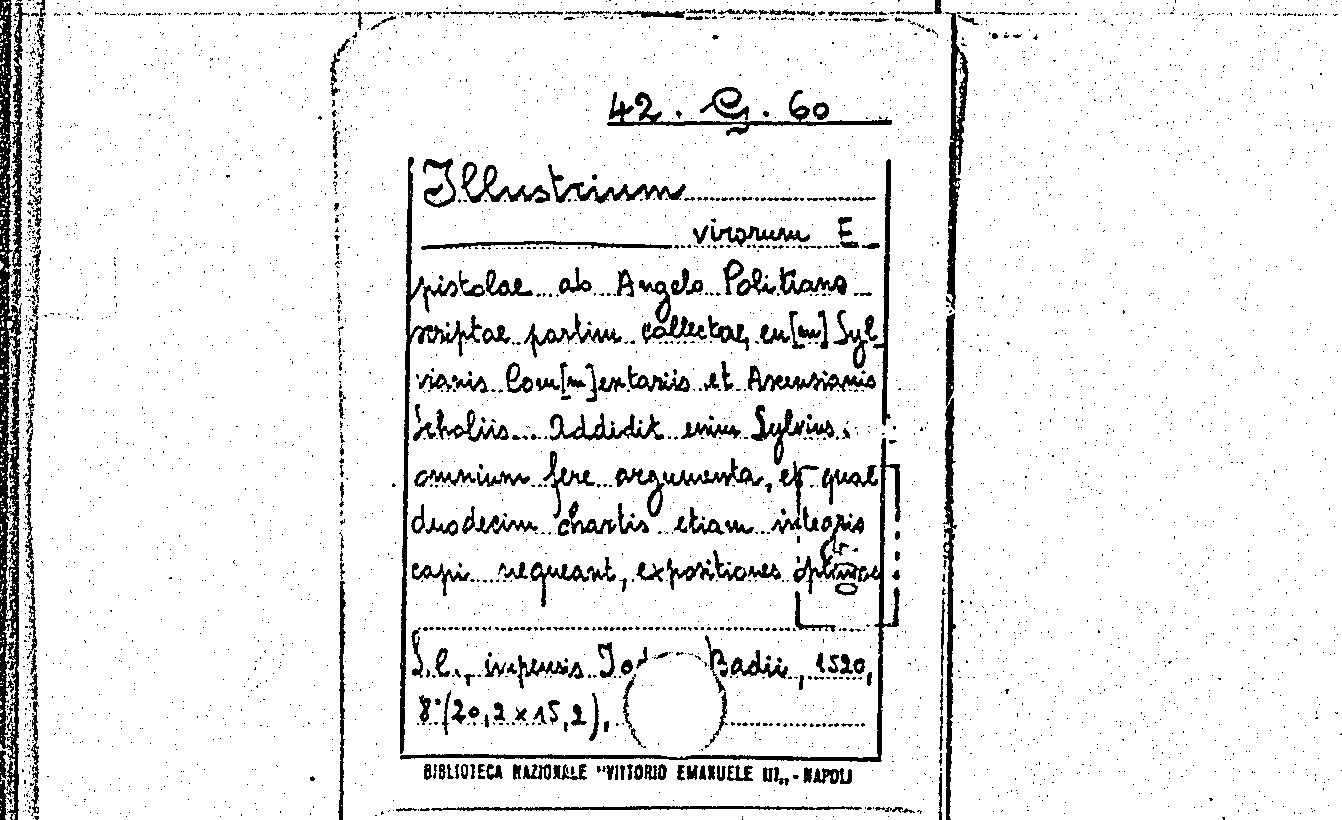 42. G. 60
Illustrium
virorum E_
pistolae ab Angelo Politiano
scriptae partim collectae, cu[m] Syl_
vianis Com[m]entariis et Ascensianis
Scholiis. Addidit enim Sylvius.
omnium fere argumenta, et quae
duodecim chartis etiam integris
capi nequeant, expositiones optimae
S.l., impensis Badii, 1520,
8°(20,2 x 15,2),
BIBLIOTECA NAZIONALE "VITTORIO EMANUELE III„ - NAPOLI